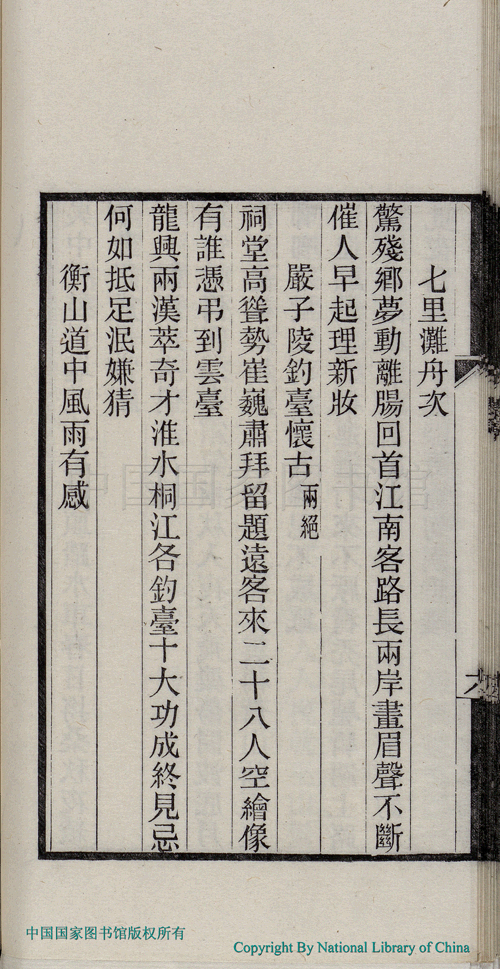 七里灘舟次
驚殘鄉夢動離腸回首江南客路長兩岸畫眉聲不斷
催人早起理新妝
嚴子陵釣臺懷古 兩絕
祠堂高聳勢崔巍肅拜留題遠客來二十八人空繪像
有誰憑弔到雲臺
龍興兩漢萃奇才淮水桐江各釣臺十大功成終見忌
何如抵足泯嫌猜
衡山道中風雨有感
中国国家图书馆版权所有
Copyright By National Library of China